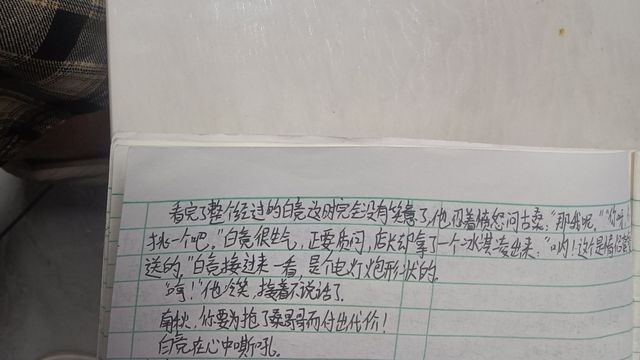 看完了整个经过的白竞这时完全没有笑意了,他忍着愤怒问古桑:"那我呢?""你
挑一个吧。"白竞很生气,正要质问,店长却拿了一个冰淇凌出来:"哟!这个是情侣
送的。"白竞接过来一看,是个电灯炮形状的。
"呵!"他冷笑,接着不说话了。
南秋,你要为抢了桑哥哥而付出代价!
白竞在心中嘶吼。